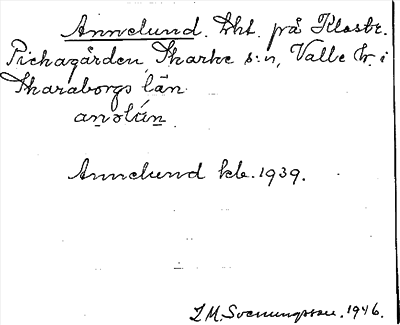 Annelund. Lht. på Klostr.
Pickagården, Skarke s:n, Valle hd. i
Skaraborgs län.
anolún
Annelund kb. 1939.
L.M. Svenungsson. 1946.